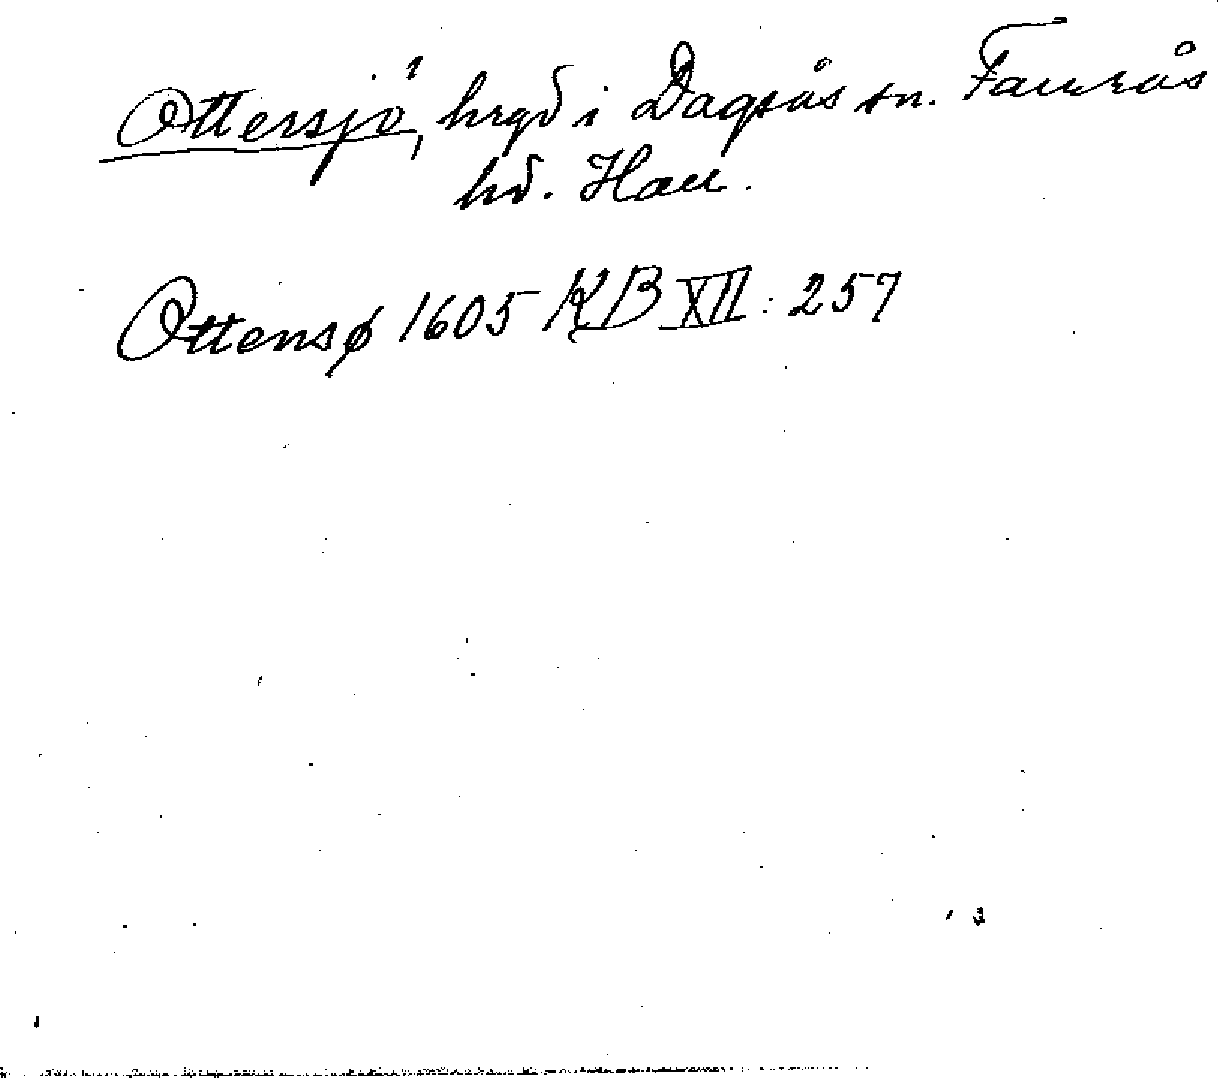 Ottersjö, hrgd i Dagsås sn. Faurås
hd. Hall.
Ottensø 1605 KB XII: 257